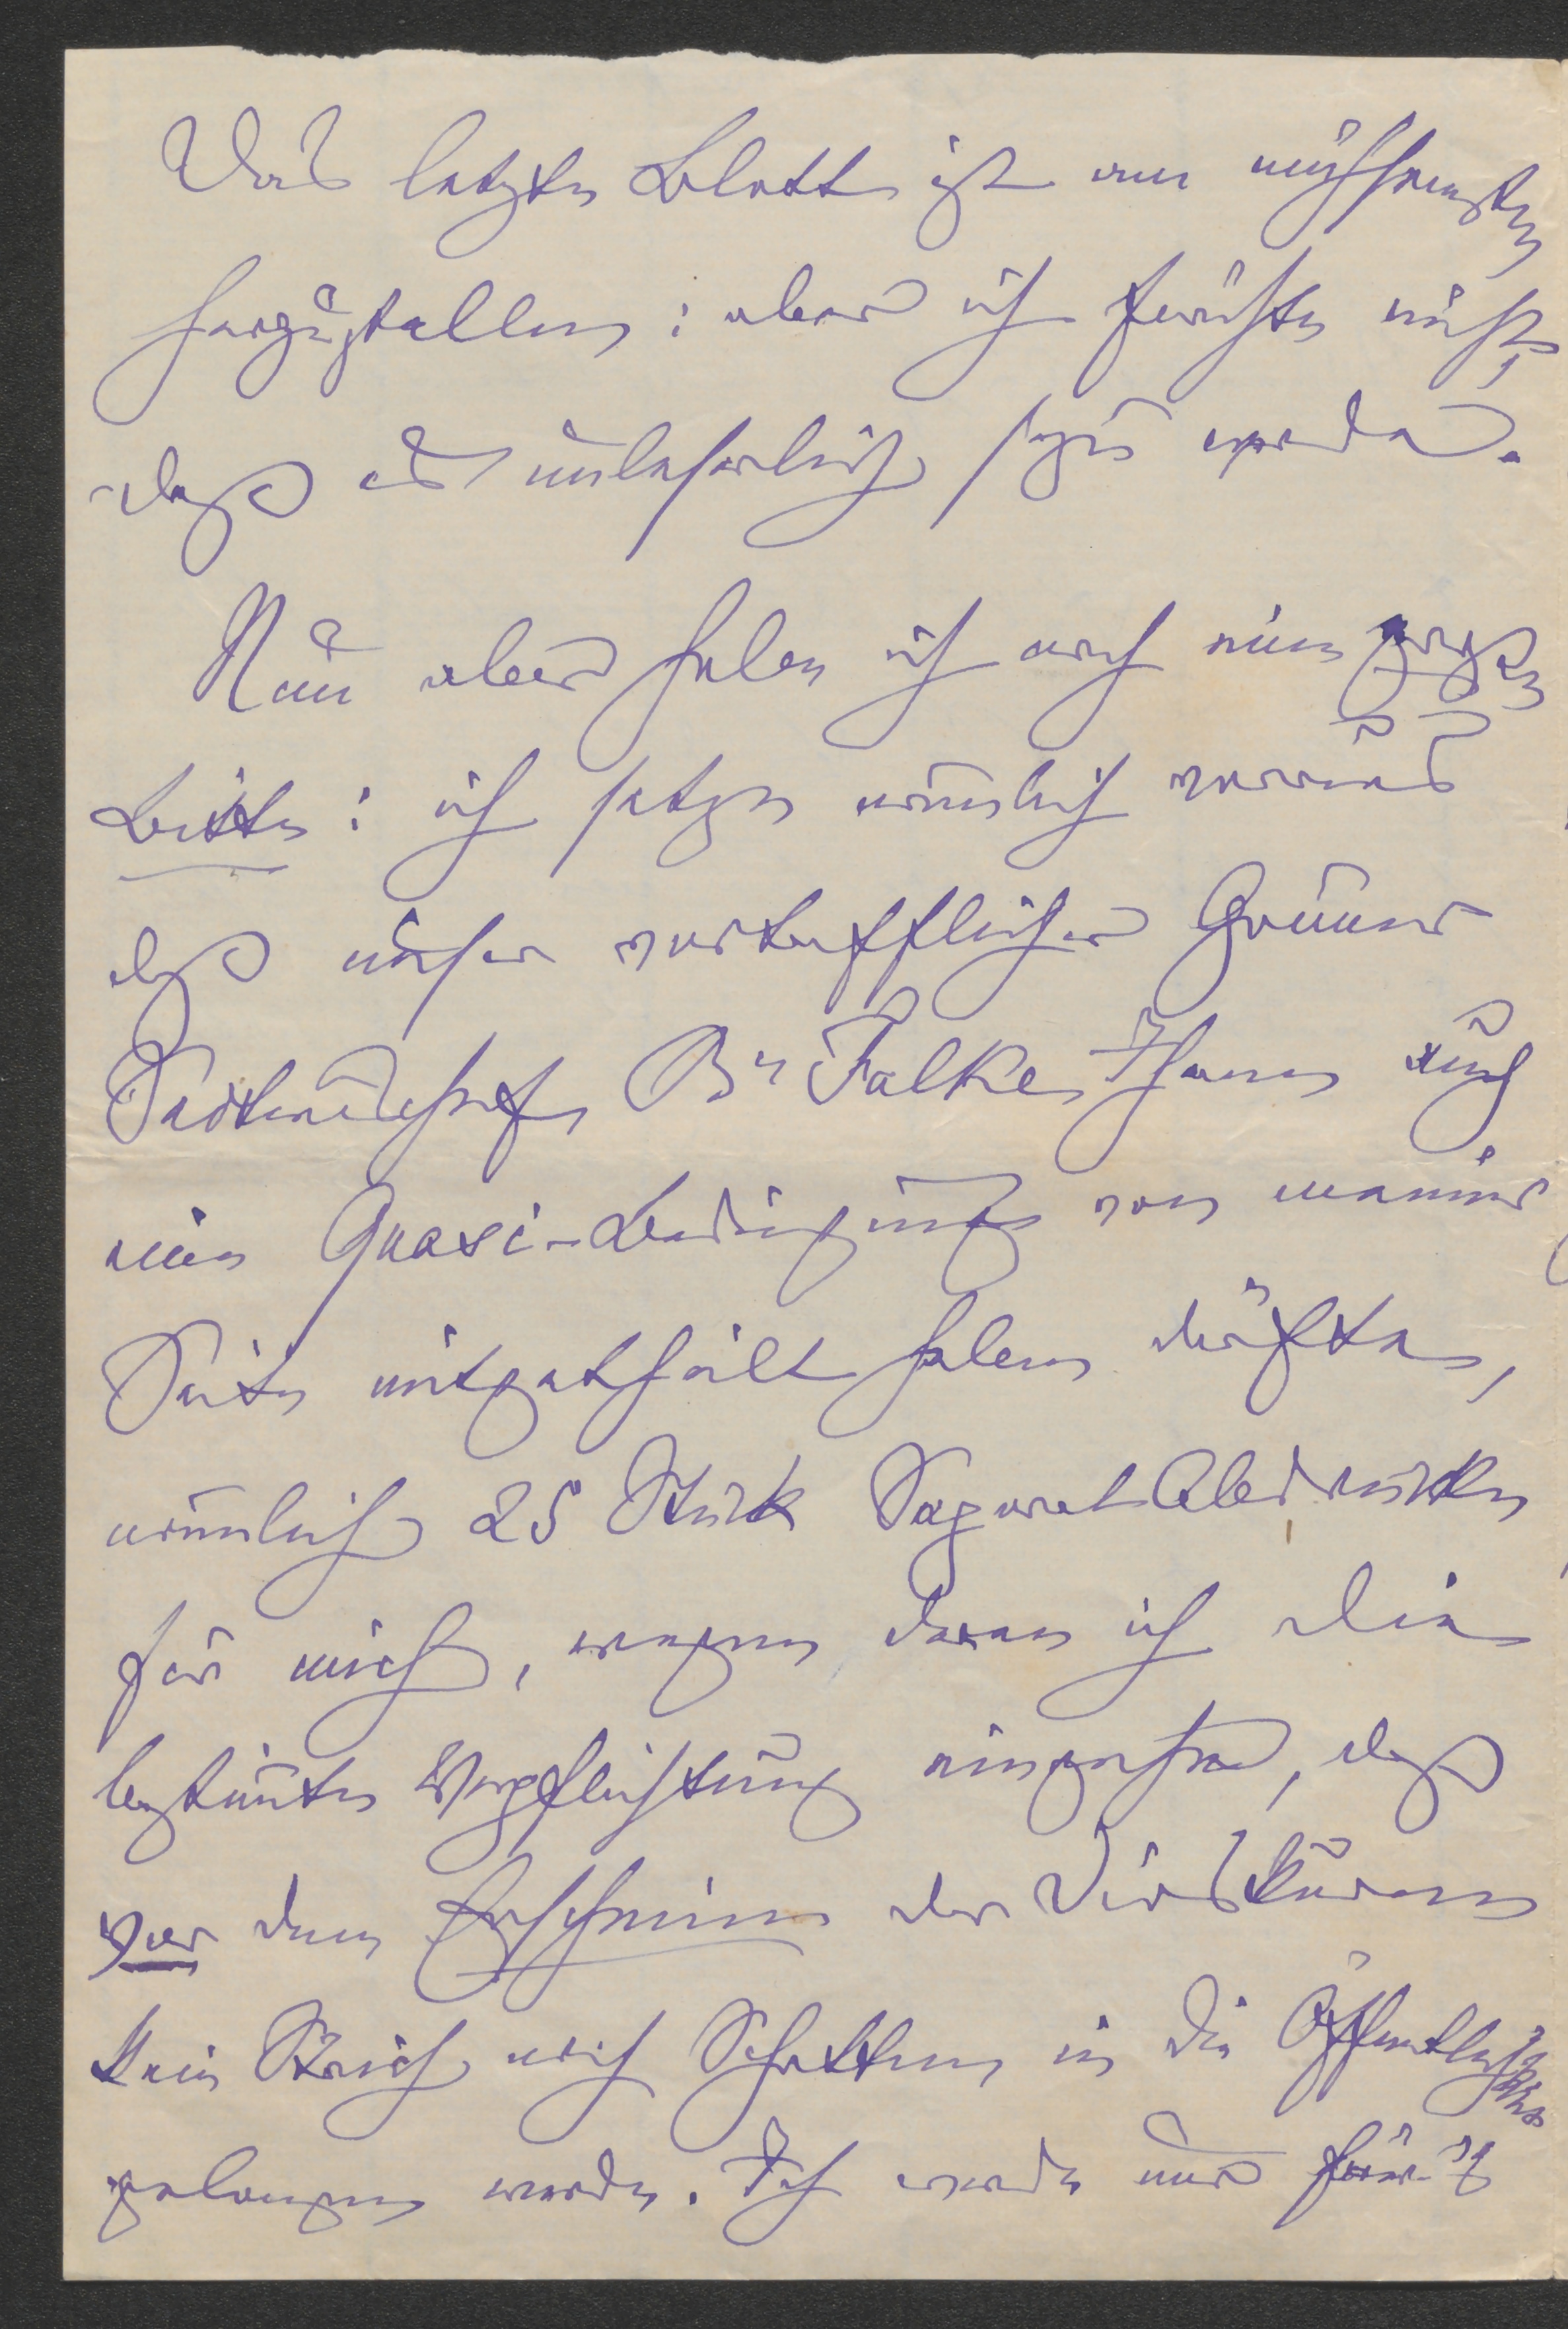 Das letzte Blatt ist am mühsamsten
herzustellen: aber ich fürchte nicht,
daß es unleserlich seyn werde.
Nun aber habe ich noch eine große
Bitte: ich setze nämlich voraus
daß unser vortrefflicher Gönner
Br Falke Ihnen auch
eine Quasi-Bedingung von meiner
Seite mitgetheilt haben dürfte,
nämlich 25 Stück Separat Abdrücke
für mich, wegen deren ich die
bestimte Verpflichtung eingehe, daß
vor dem Erscheinen der
kein Strich noch Schatten in die Öffentlichkeit
gelangen werde. Ich werde nur für's